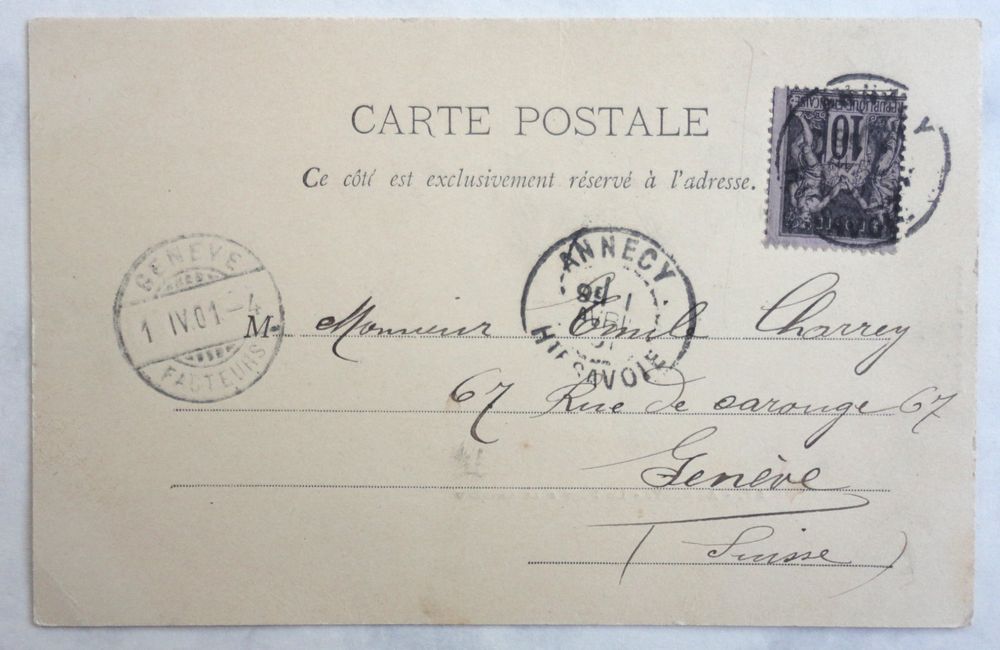 CARTE POSTALE
Ce côté est exclusivement réservé à l'adresse.
RÉPUBLIQUE FRANÇAISE
10
GENÈVE
1 IV.01-4
FACTEURS
ANNECY
AVRIL
01
HTE SAVOIE
M- Monsieur Emile Charrey
67 Rue de carouge 67
Genève
(Suisse)